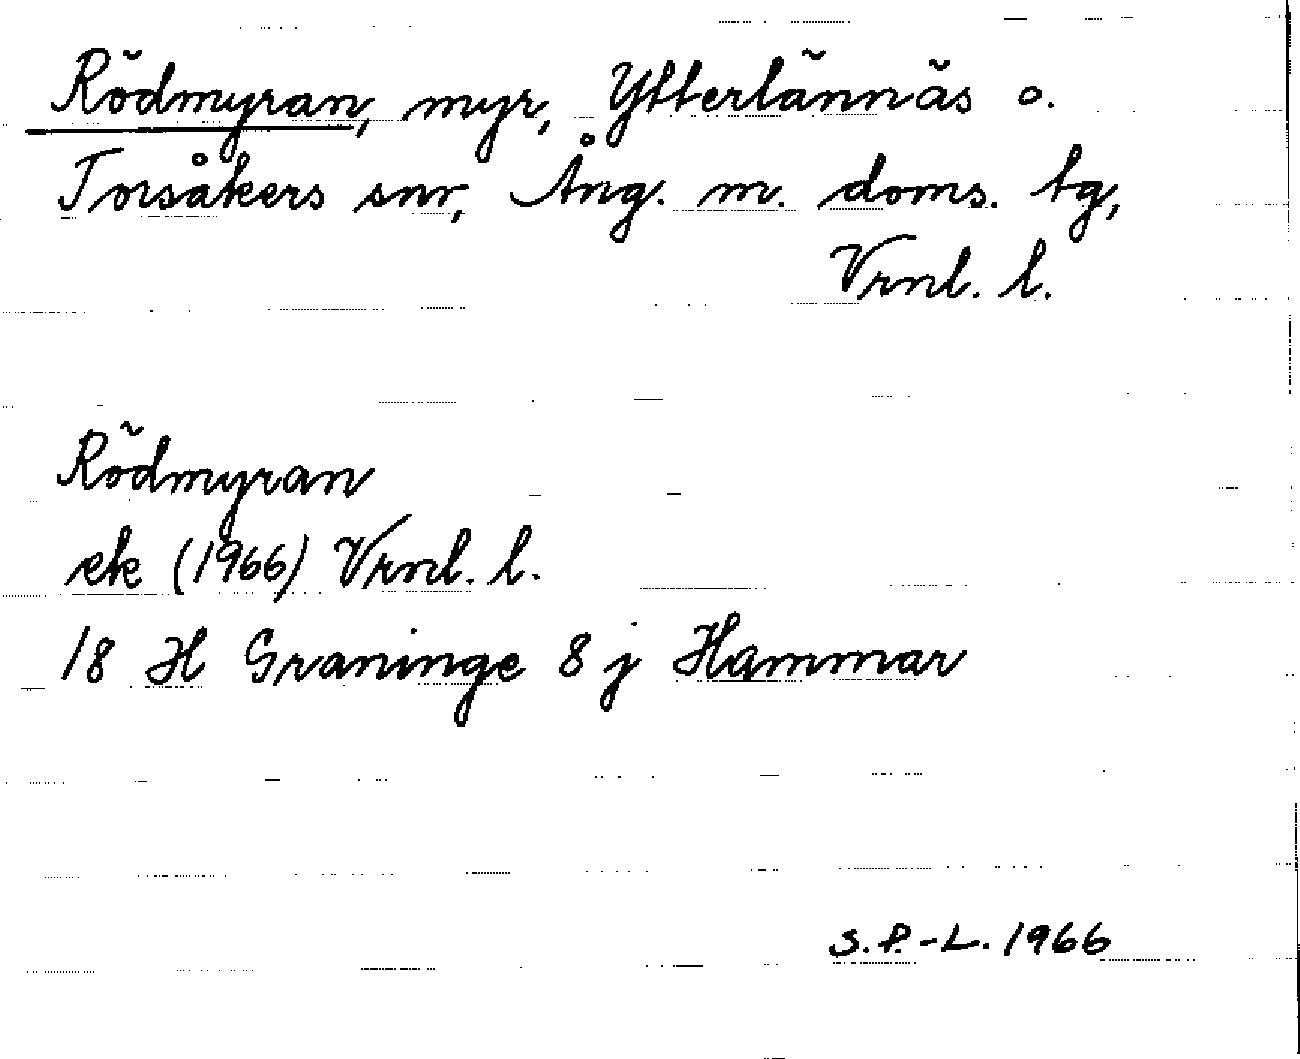 Rödmyran, myr, Ytterlännäs o.
Torsåkers snr, Ång. m. doms. tg,
Vrnl. l.
Rödmyran
ek (1966) Vrnl. l.
18 H Graninge 8 j Hammar
S.P.-L. 1966